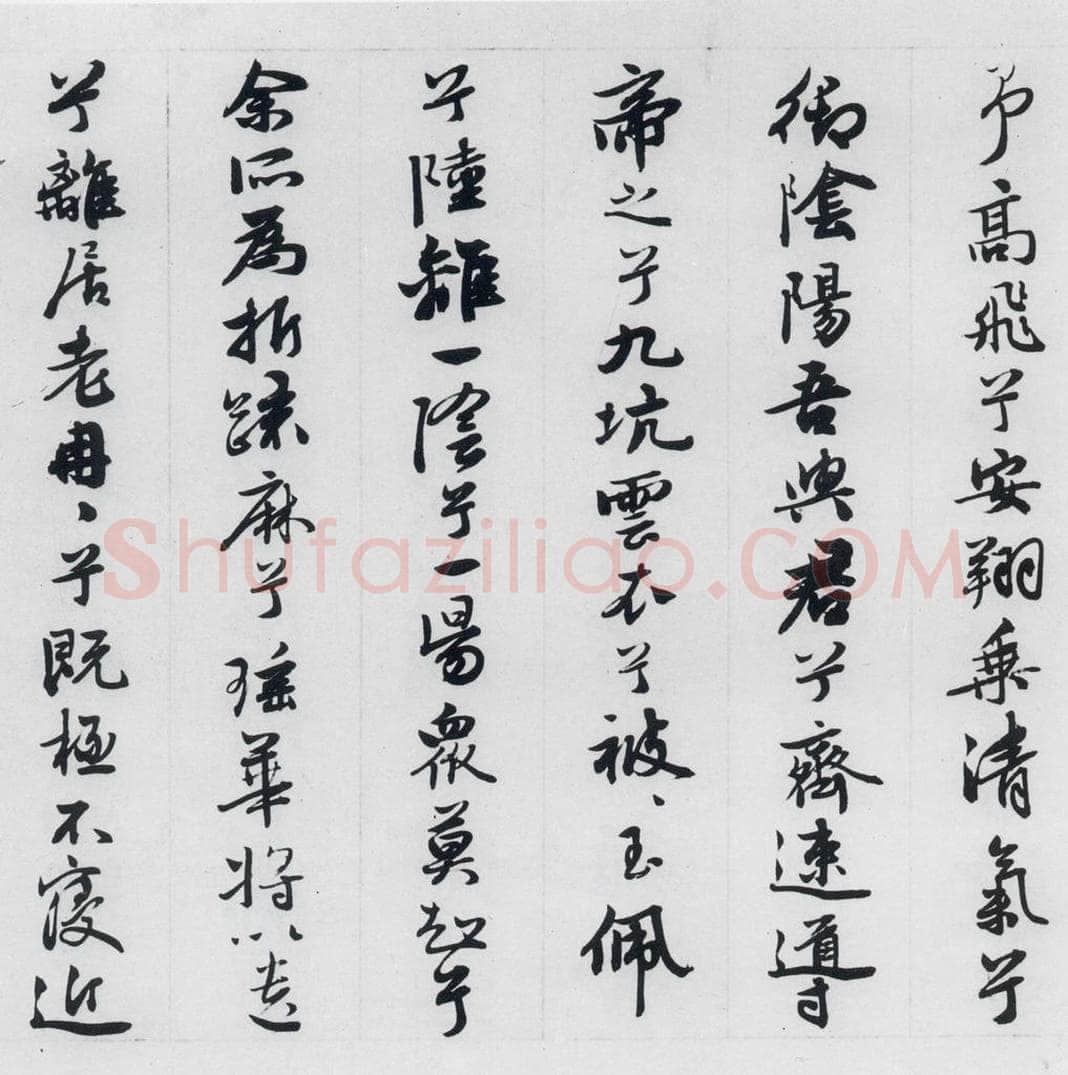 予高飛兮安翔乘清氣兮
御陰陽吾與君兮齊速導
帝之兮九坑雲衣兮被〻玉佩
兮陸離一陰兮一陽衆莫知兮
余所為折踈麻兮瑤華將以遺
兮離居老冉〻兮既極不寖近
Shufaziliao.COM